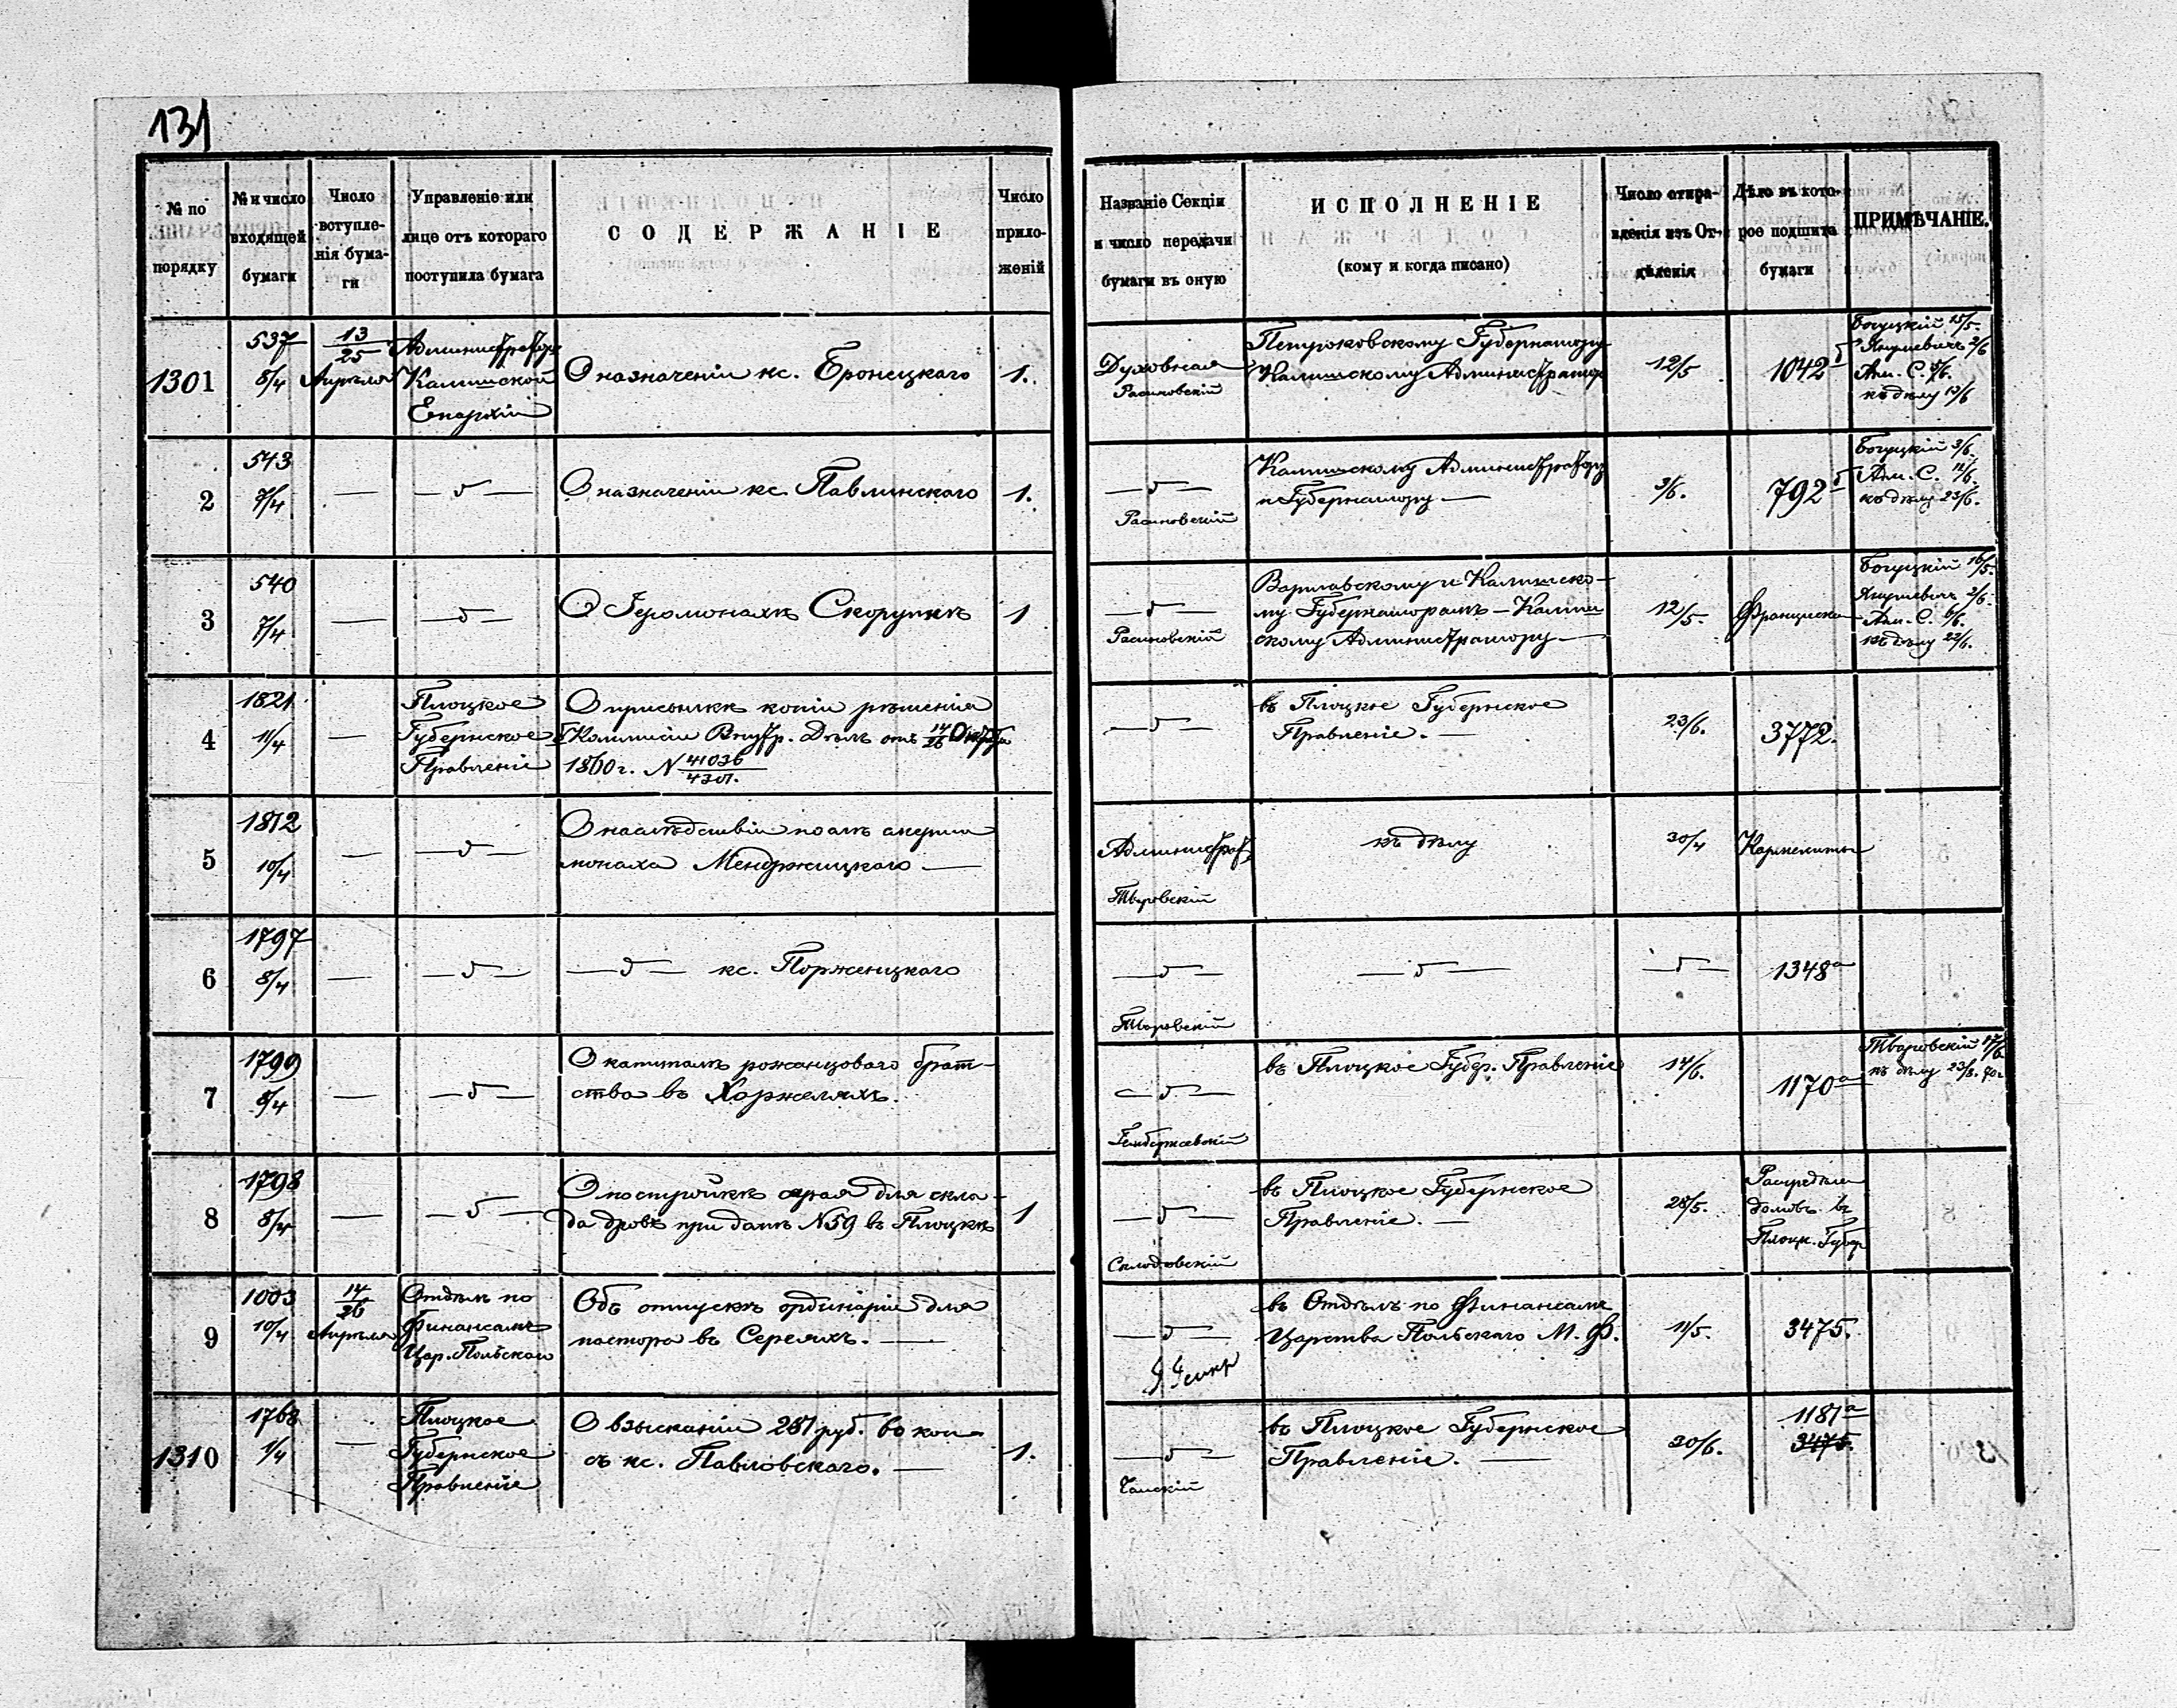 131
№ по порядку
№ и число входящей бумаги
Число вступле-нія бума-ги
Управленіе или лице отъ котораго поступила бумага
СОДЕРЖАНІЕ
Число прило-женій
Названіе Секціи и число передачи бумаги въ оную
ИСПОЛНЕНІЕ
(кому и когда писано)
Число отпра-вленія изъ От-дѣленія
Дѣло въ кото-рое подшита бумага
ПРИМѢЧАНІЕ.
1301
537
8/4
13/25
Апрѣля
Администраторъ
Калишской
Епархіи
О назначеніи кс. Бронецкаго
1.
Духовная
Расиновскій
Петроковскому Губернатору
Калишскому Администратору
12/5
1042 б
Богуцкій 15/5.
Янушевичъ 2/6
Адм. С. 5/6.
къ дѣлу 13/6
2
543
7/4
—
— д —
О назначеніи кс. Павлинскаго
1.
— д —
Расиновскій
Калишскому Администратору
и Губернатору —
3/6.
792 б
Богуцкій 3/6.
Адм. С. 12/6.
къ дѣлу 23/6.
3
540
7/4
—
— д —
О Іеромонахѣ Скорупкѣ
1
— д —
Расиновскій
Варшавскому и Калишско-
му Губернаторамъ – Кали
скому Администратору —
12/5.
Францискан
Богуцкій 16/5.
Янушевичъ 2/6.
Адм. С. 6/6.
къ дѣлу 22/6.
4
1821
11/4
—
Плоцкое
Губернское
Правленіе
О присылкѣ копіи рѣшенія
Коммисіи Внутр. Дѣлъ отъ 14/26 Октября
1860 г. N 41036/4301.
— д —
въ Плоцкое Губернское
Правленіе. —
23/6.
3772.
5
1812
10/4
—
— д —
О наслѣдствіи по
монаха Менджицкаго —
Администрат.
Творовскій
къ дѣлу
30/4
Кармелиты
6
1797
8/4
—
— д —
— д — кс. Порженицкаго
— д —
Творовскій
— д —
— д —
1348 а
7
1799
8/4
—
— д —
О капиталѣ рожанцоваго брат-
ства въ Хоржеляхъ.
— д —
Гембержевскій
въ Плоцкое Губер. Правленіе
14/6.
1170 а
Творовскій 17/6
къ дѣлу 23/8. 70.
8
1798
8/4
—
— д —
О постройкѣ сарая для скла-
да дровъ при домѣ N 59 въ Плоцкѣ
1
— д —
Склодовскій
въ Плоцкое Губернское
Правленіе. —
28/5.
домовъ въ
Плоцк. Губер
9
1003
10/4
14/26
Апрѣля
Отдѣлъ по
Финансамъ
Цар. Польскаго
Объ отпускѣ ординаріи для
пастора въ Сереяхъ. —
— д —
въ Отдѣлъ по Финансамъ
Царства Польскаго М. Ф.
11/5.
3475.
1310
1768
1/4
—
Плоцкое
Губернское
Правленіе
О взысканіи 281 руб. въ коп
съ кс. Павловскаго. —
1.
— д —
въ Плоцкое Губернское
Правленіе. —
30/6.
1181 а
3475.